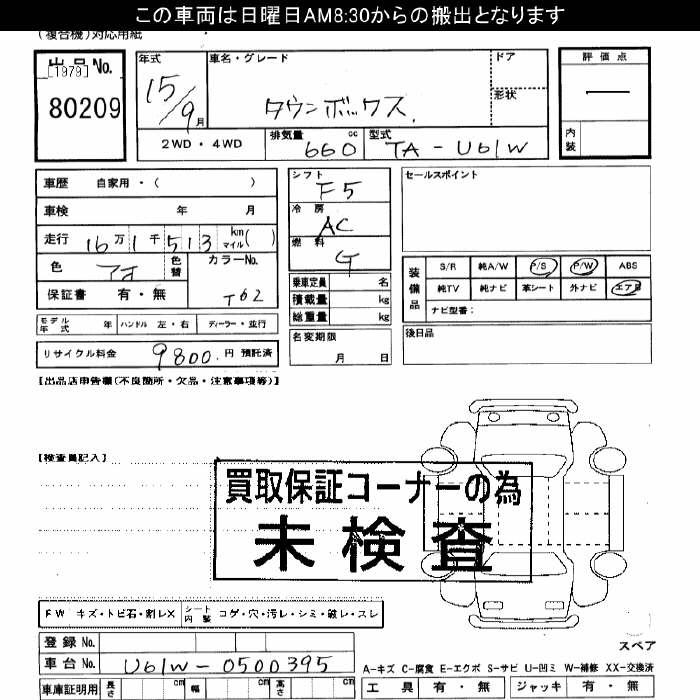 この車両は日曜日AM8:30からの搬出となります
(複合機)対応用紙
出品No.
[1979]
80209
年式
15/9月
車名・グレード
タウンボックス
ドア
形状
評価点
内装
2WD・4WD
排気量 660 cc
型式 TA-U61W
車歴 自家用・( )
車検 年 月
走行 16万1千513 km マイル( )
色 アオ 色替
カラーNo. T62
保証書 有・無
モデル年式 年 ハンドル 左・右 ディーラー・並行
リサイクル料金 9800.円 預託済
シフト F5
冷房 AC
燃料 G
乗車定員 名
積載量 kg
総重量 kg
名変期限
月 日
セールスポイント
装備品
S/R 純A/W P/S P/W ABS
純TV 純ナビ 革シート 外ナビ エアB
ナビ型番:
後日品
【出品店申告欄(不良箇所・欠品・注意事項等)】
【検査員記入】
買取保証コーナーの為
未検査
FW キズ・トビ石・割レX
シート内装 コゲ・穴・汚レ・シミ・破レ・スレ
登録No.
車台No. U61W-0500395
スペア
A-キズ C-腐食 E-エクボ S-サビ U-凹ミ W-補修 XX-交換済
車庫証明用 長さ cm 幅 cm 高さ cm
工具 有・無 ジャッキ 有・無